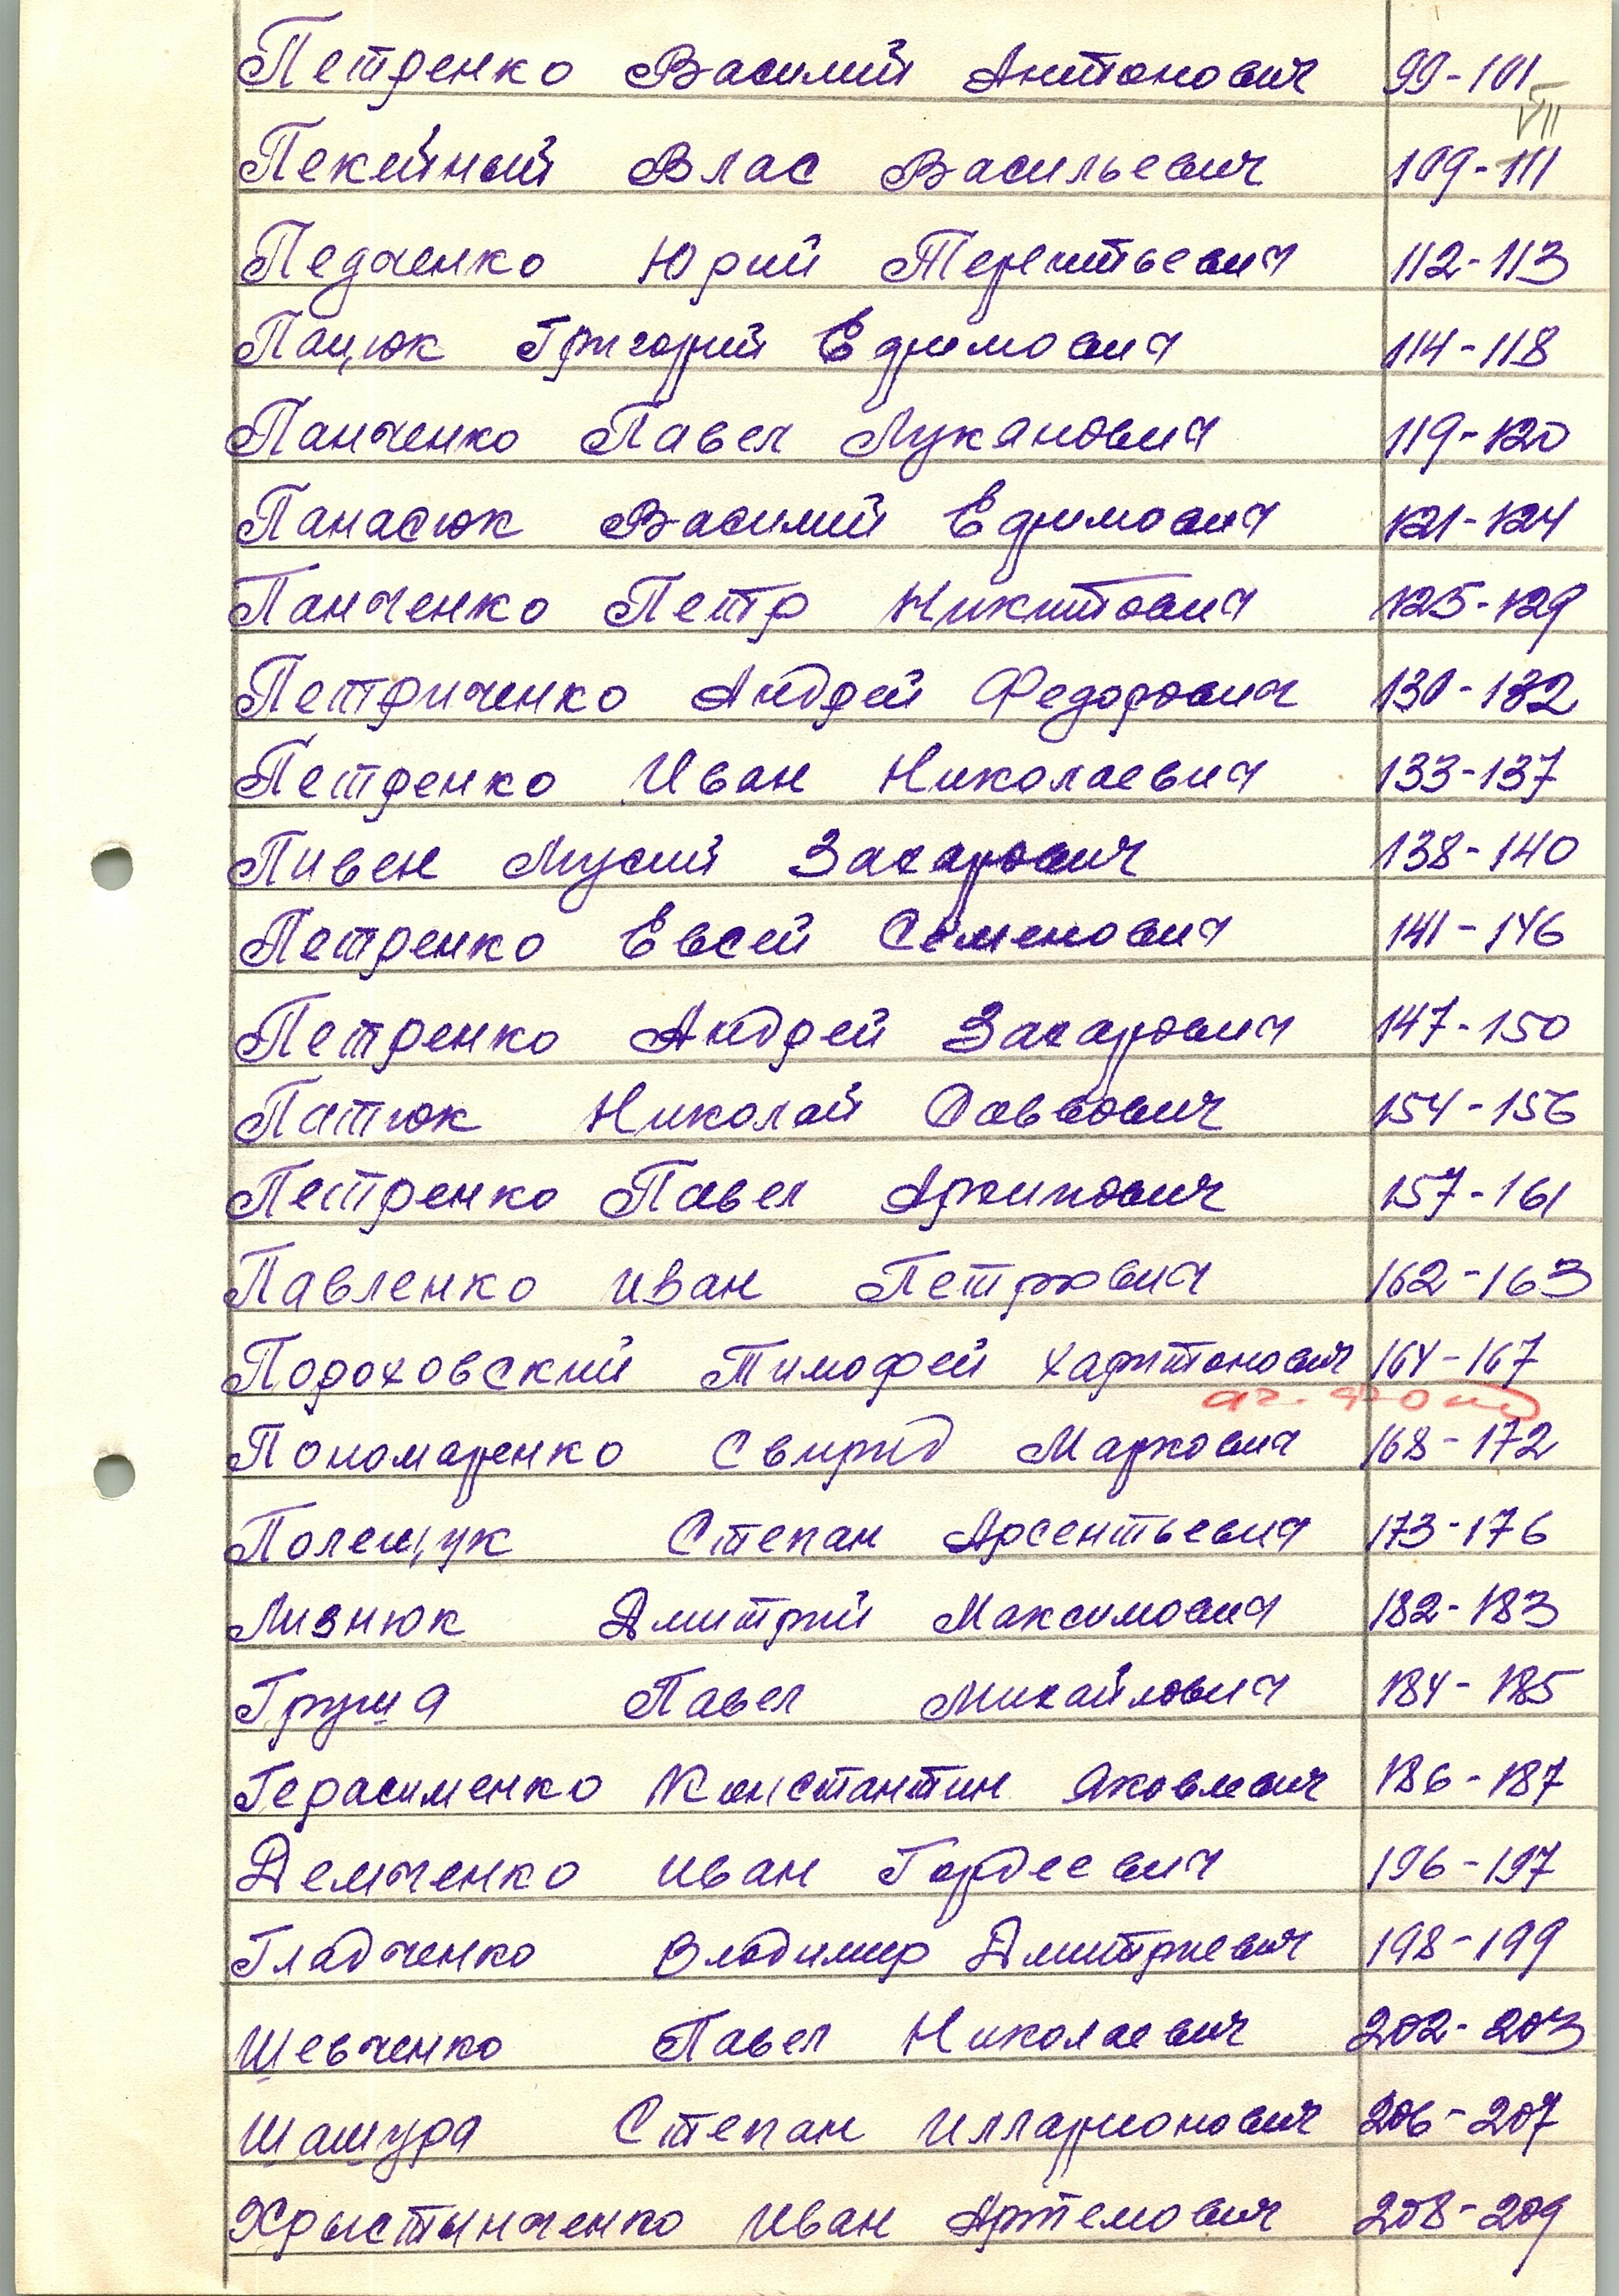 Петренко Василий Антонович 99-101
VII
Пекейный Влас Васильевич 109-111
Педченко Юрий Терентьевич 112-113
Пацюк Григорий Ефимович 114-118
Панченко Павел Лукянович 119-120
Панасюк Василий Ефимович 121-124
Панченко Петр Никитович 125-129
Петриченко Андрей Федорович 130-132
Петренко Иван Николаевич 133-137
Пивен Мусий Захарович 138-140
Петренко Евсей Семенович 141-146
Петренко Андрей Захарович 147-150
Патюк Николай Саввович 154-156
Петренко Павел Архипович 157-161
Павленко Иван Петрович 162-163
Подоховский Тимофей Харитонович 164-167
Пономаренко Свирид Маркович 168-172
Полещук Степан Арсентьевич 173-176
Лизнюк Дмитрий Максимович 182-183
Груша Павел Михайлович 184-185
Герасименко Константин Яковлевич 186-187
Демченко Иван Гордеевич 196-197
Гладченко Владимир Дмитриевич 198-199
Шевченко Павел Николаевич 202-203
Шашура Степан Илларионович 206-207
Хрыстынченко Иван Артемович 208-209